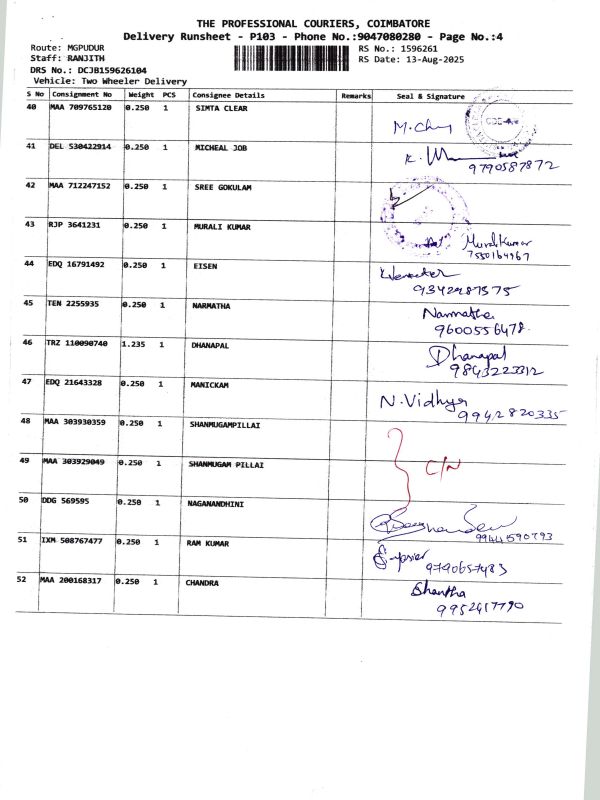 THE PROFESSIONAL COURIERS, COIMBATORE
Delivery Runsheet - P103 - Phone No.:9047080280 - Page No.:4
Route: MGPUDUR RS No.: 1596261
Staff: RANJITH RS Date: 13-Aug-2025
DRS No.: DCJB159626104
Vehicle: Two Wheeler Delivery
S No Consignment No Weight PCS Consignee Details Remarks Seal & Signature
40 MAA 709765120 0.250 1 SIMTA CLEAR
41 DEL 530422914 0.250 1 MICHEAL JOB
9790587872
42 MAA 712247152 0.250 1 SREE GOKULAM
43 RJP 3641231 0.250 1 MURALI KUMAR
Murali Kumar
7550164967
44 EDQ 16791492 0.250 1 EISEN
9342987575
45 TEN 2255935 0.250 1 NARMATHA
Narmatha
9600556478
46 TRZ 110090740 1.235 1 DHANAPAL
Dhanapal
9843223312
47 EDQ 21643328 0.250 1 MANICKAM
N. Vidhya
9942820335
48 MAA 303930359 0.250 1 SHANMUGAMPILLAI
49 MAA 303929049 0.250 1 SHANMUGAM PILLAI
C/N
50 DDG 569595 0.250 1 NAGANANDHINI
99441590793
51 IXM 508767477 0.250 1 RAM KUMAR
9790657483
52 MAA 200168317 0.250 1 CHANDRA
Shantha
9952417790